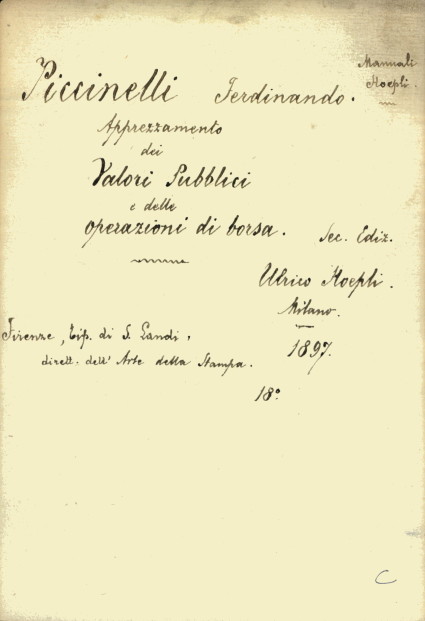 Manuali
Hoepli.
Piccinelli Ferdinando.
Apprezzamento
dei
Valori Pubblici
e delle
operazioni di borsa.
Sec. Ediz.
Ulrico Hoepli.
Milano.
1897.
Firenze, Tip. di S. Landi,
dirett. dell' Arte della Stampa.
18°
C